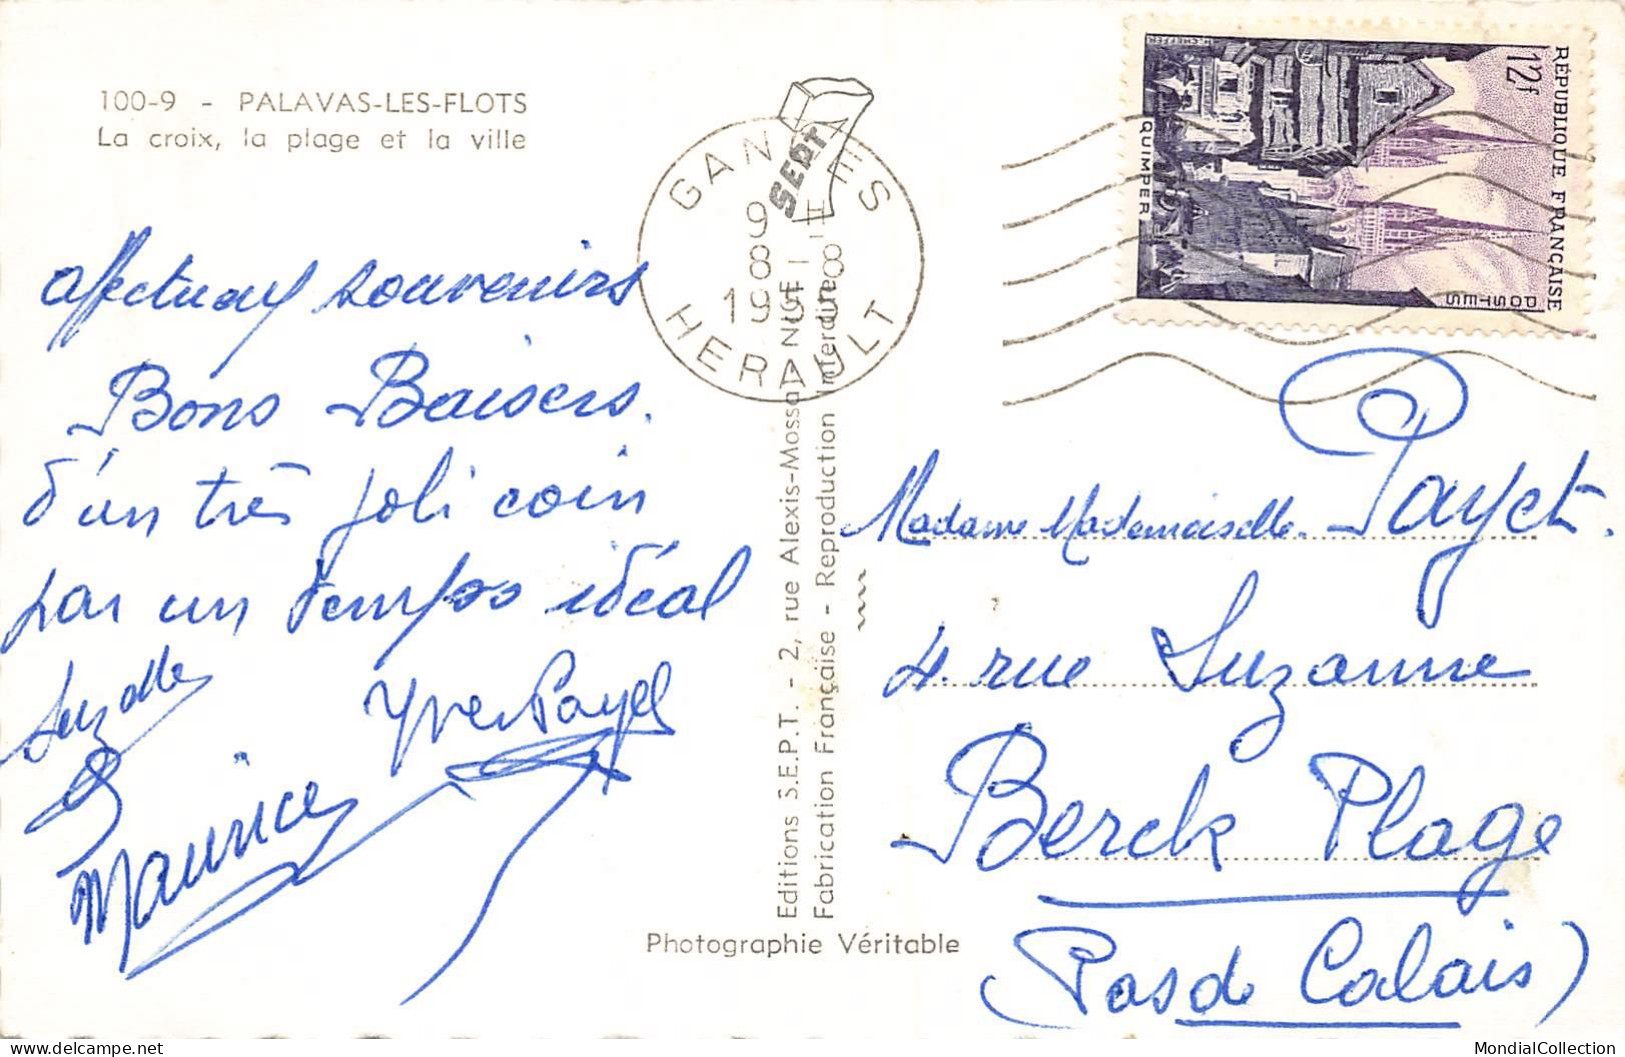 100-9 - PALAVAS-LES-FLOTS
La croix, la plage et la ville
affectueux souvenirs
Bons Baisers.
d'un très joli coin
par un temps idéal
Suzette
Yves Payet
Maurice
GANGES
9-8 II
HERAULT
SEPT
Editions S.E.P.T. - 2, rue Alexis-Mossa NICE
Fabrication Française - Reproduction Interdite
Photographie Véritable
RÉPUBLIQUE FRANÇAISE
12f
POSTES
QUIMPER
H. CHEFFER
Madame Mademoiselle. Payet.
4. rue Suzanne
Berck Plage
(Pas de Calais)
MondialCollection
www.delcampe.net